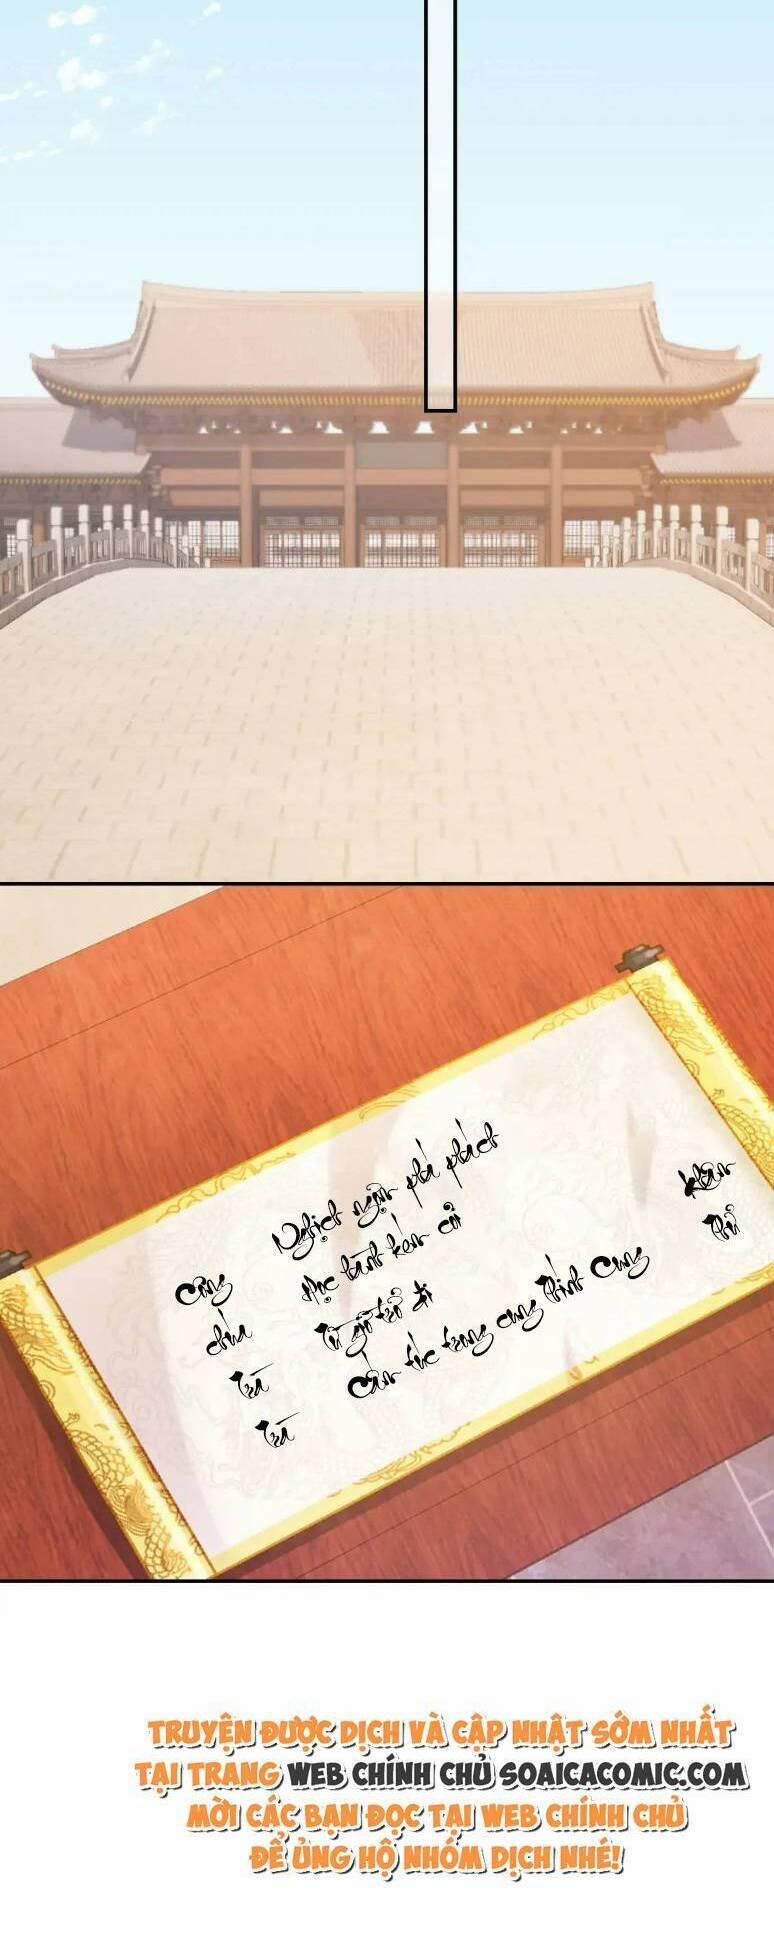 Công
chúa
Trà
Trà
Nghịch ngợm phá phách
Học hành kém cỏi
Từ giờ trở đi
Cấm túc trong cung Thính Cung
khâm
thử
TRUYỆN ĐƯỢC DỊCH VÀ CẬP NHẬT SỚM NHẤT
TẠI TRANG WEB CHÍNH CHỦ SOAICACOMIC.COM
MỜI CÁC BẠN ĐỌC TẠI WEB CHÍNH CHỦ
ĐỂ ỦNG HỘ NHÓM DỊCH NHÉ!